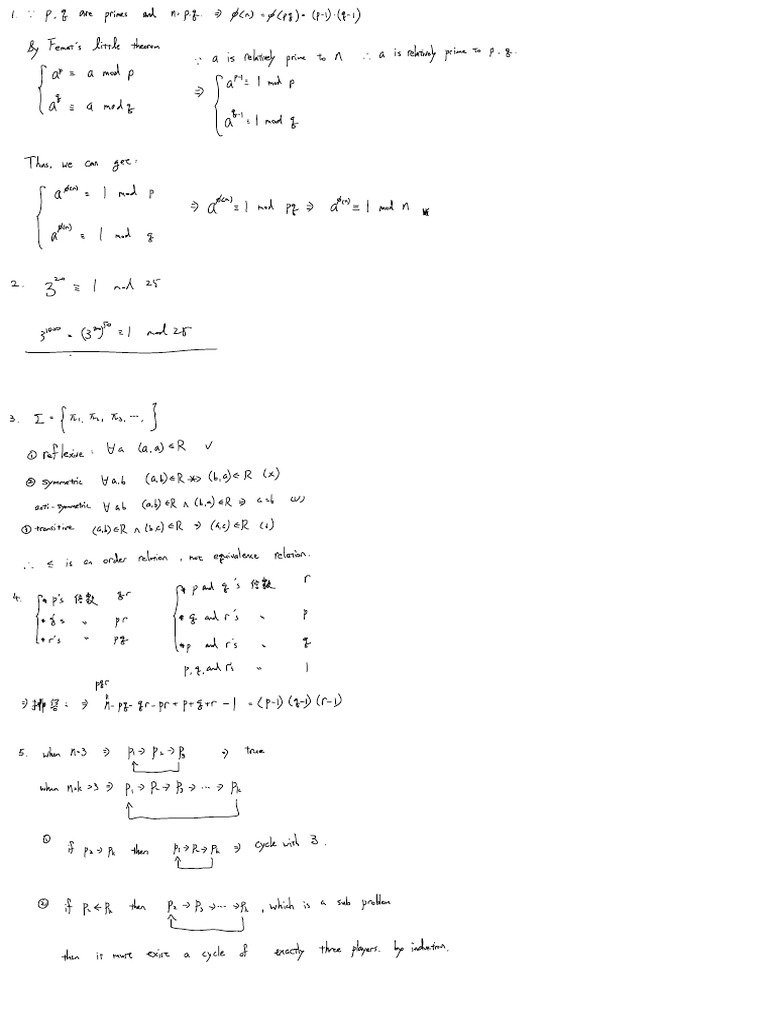 1. ∵ p, q are primes and n=p.q. ⇒ ϕ(n) = ϕ(pq) = (p-1)·(q-1)
By Femat's little theorem
∵ a is relatively prime to n ∴ a is relatively prime to p, q.
{ a^p ≡ a mod p
a^q ≡ a mod q
⇒ { a^(p-1) ≡ 1 mod p
a^(q-1) ≡ 1 mod q
Thus, we can get:
{ a^ϕ(n) ≡ 1 mod p
a^ϕ(n) ≡ 1 mod q
⇒ a^ϕ(n) ≡ 1 mod pq ⇒ a^ϕ(n) ≡ 1 mod n
2. 3^20 ≡ 1 mod 25
3^1000 = (3^20)^50 ≡ 1 mod 25
3. Σ = { π1, π2, π3, ..., }
① reflexive: ∀a (a,a)∈R ✓
② symmetric ∀a,b (a,b)∈R ⇏ (b,a)∈R (x)
anti-symmetric ∀ab (a,b)∈R ∧ (b,a)∈R ⇒ a=b (✓)
③ transitive (a,b)∈R ∧ (b,c)∈R ⇒ (a,c)∈R (✓)
∴ ≤ is an order relation, not equivalence relation.
4. { * p's 倍數 qr
* q's 〃 pr
* r's 〃 pq
{ * p and q's 倍數 r
* q and r's 〃 p
* p and r's 〃 q
p, q, and r's 〃 1
pqr
⇒ 排容: ⇒ n-pq-qr-pr+p+q+r-1 = (p-1)(q-1)(r-1)
5. when n=3 ⇒ p1→p2→p3 ⇒ true
when n=k>3 ⇒ p1→p2→p3→...→pk
① if p2→pk then p1→p2→pk ⇒ cycle with 3.
② if p2←pk then p2→p3→...→pk, which is a sub problem
then is must exist a cycle of exactly three players. by induction.